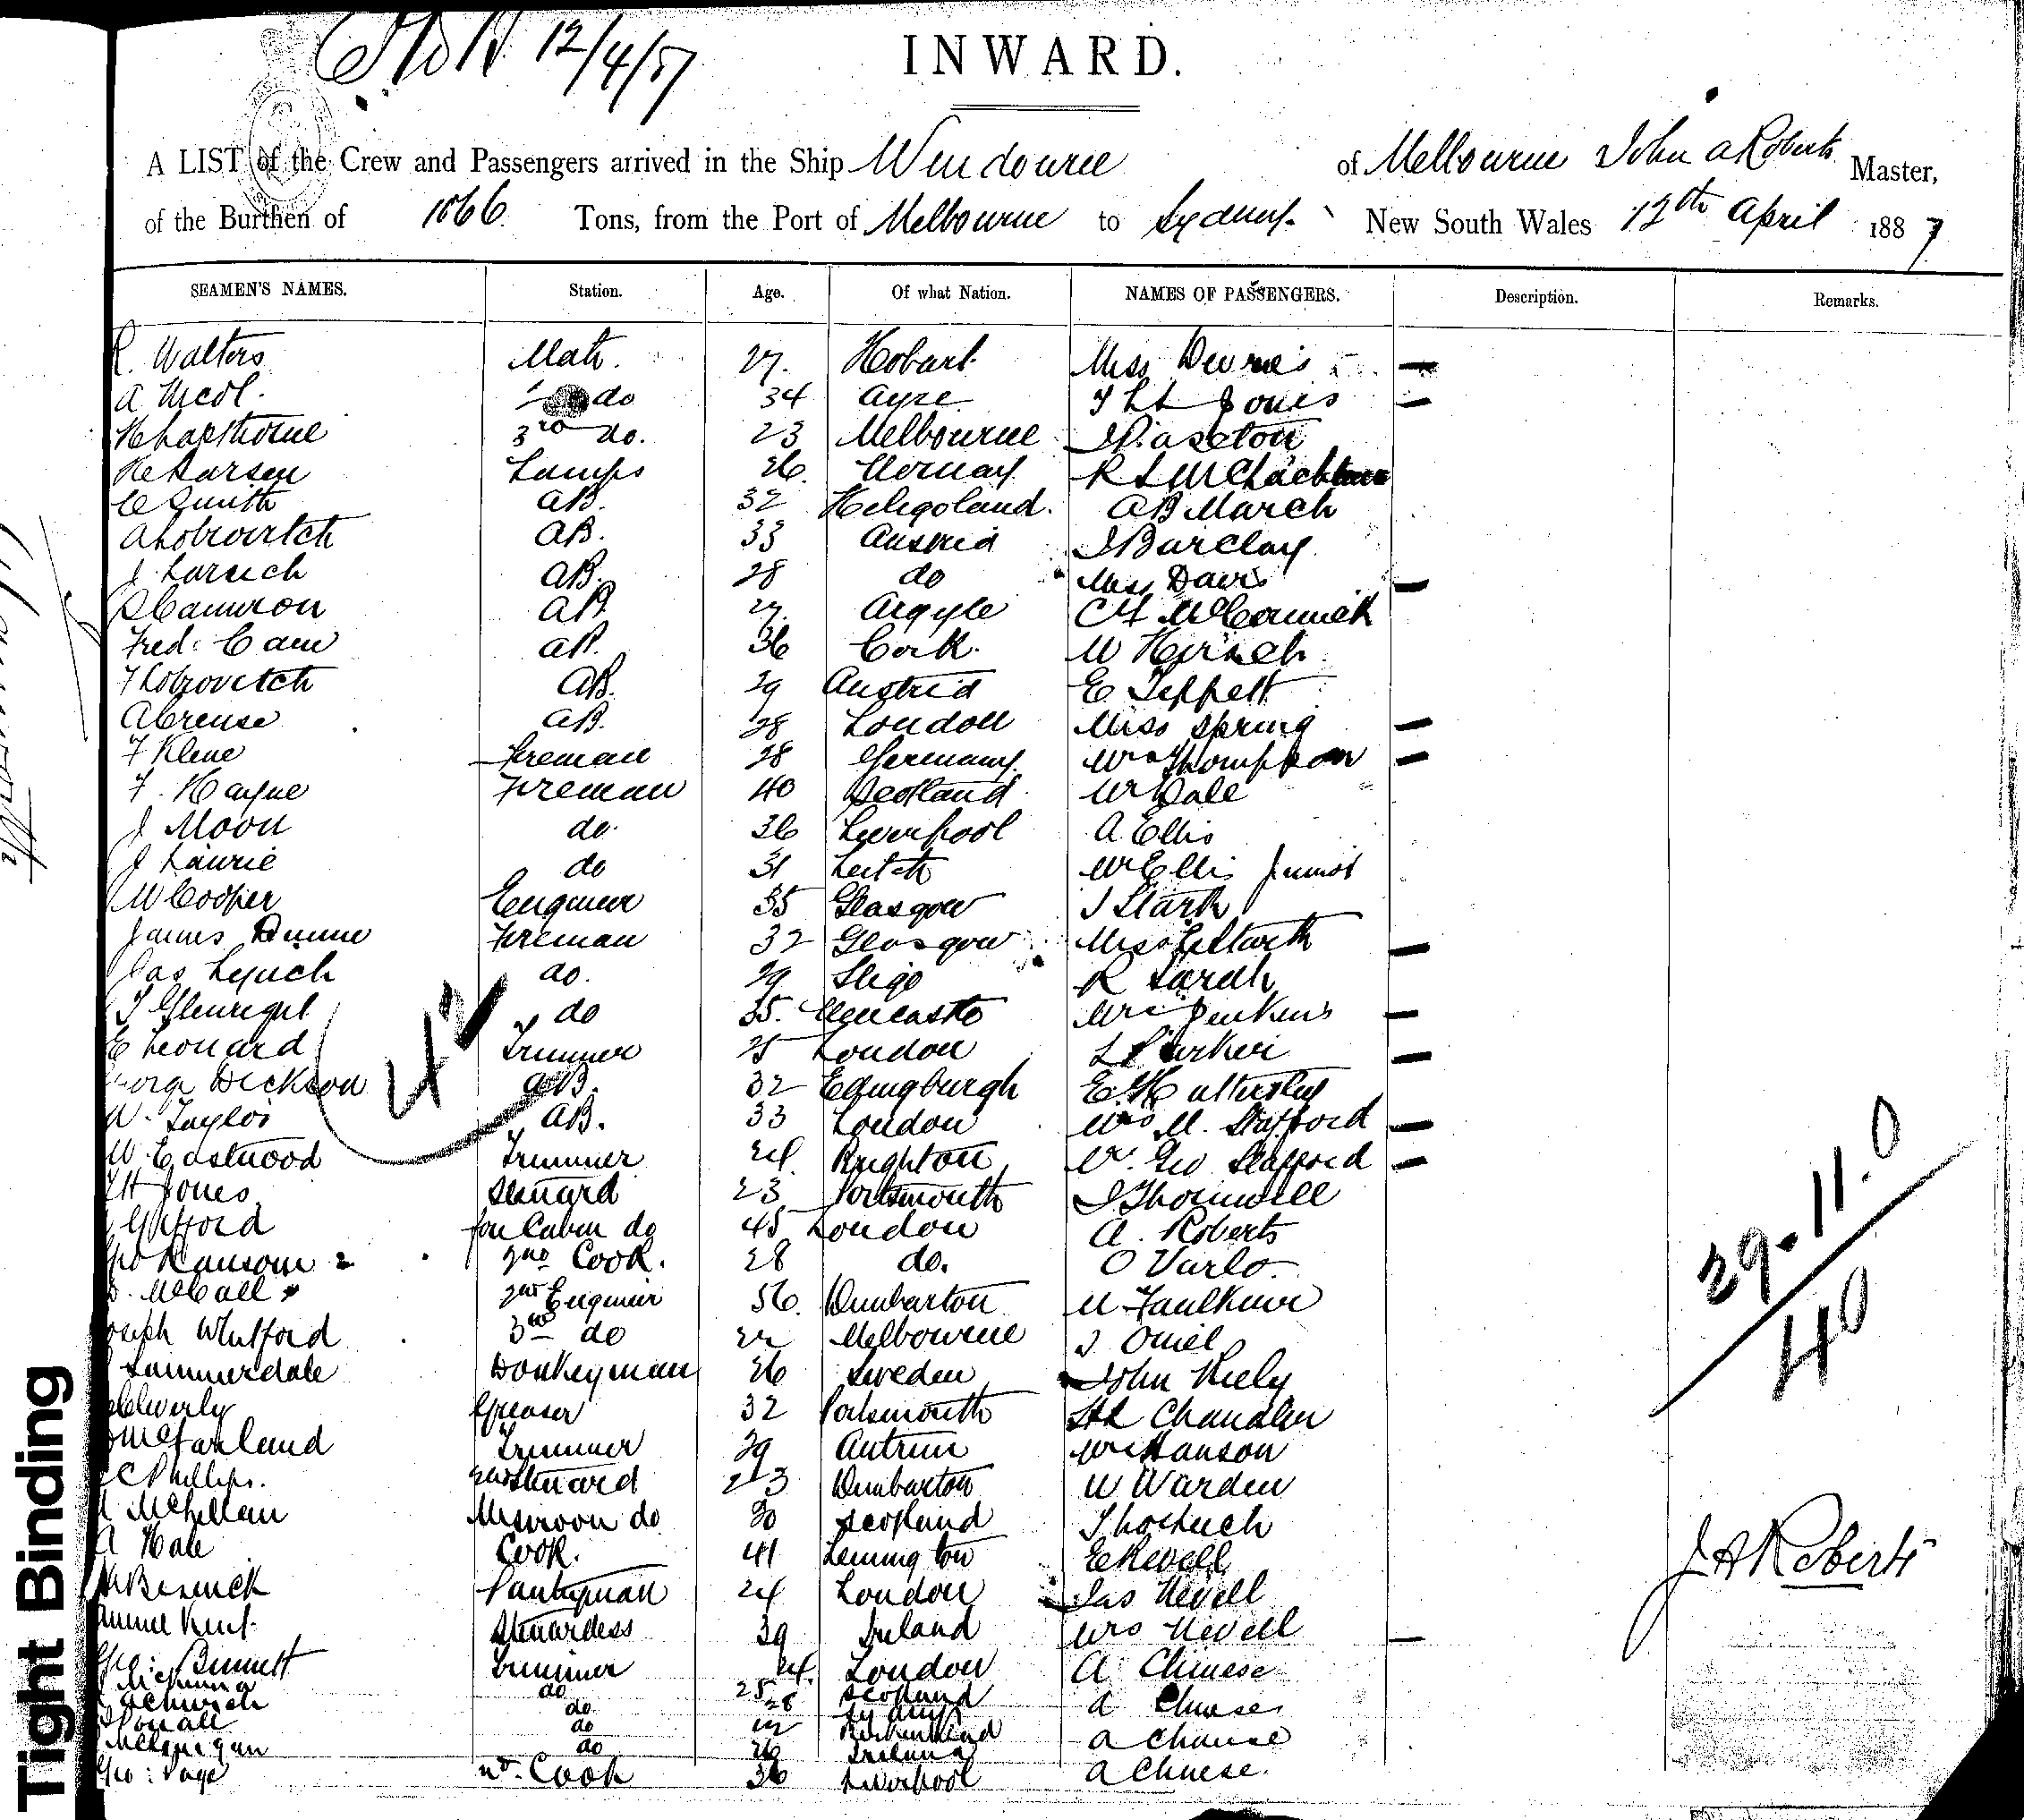 12/4/87
INWARD.
A LIST of the Crew and Passengers arrived in the Ship Wendouree of Melbourne John A Roberts Master,
of the Burthen of 1066 Tons, from the Port of Melbourne to Sydney New South Wales 12th April 1887
SEAMEN'S NAMES. Station. Age. Of what Nation. NAMES OF PASSENGERS. Description. Remarks.
R. Walters Mate. 27. Hobart Miss
A Nicol. do 34 Ayre Jones
3rd do. 23 Melbourne
H Larsen Lamps 26.
C Smith AB. 32 Heligoland. AB March
AB. 33 Austria J Barclay
AB. 28 do Miss Davis
D Cameron AB 27. Argyle McCormick
Fred: Cain AB. 36 Cork. W Hirsch
AB. 29 Austria E Teppett
AB. 28 London Miss Spring
F Klene Fireman 28 Germany Mrs Thompson
F. Hayne Fireman 40 Scotland W Dale
J Moon do. 36 Liverpool A. Ellis
J Laurie do 31 Leith W Ellis Junior
W Cooper Engineer 35 Glasgow J Stark
James Dunne Fireman 32 Glasgow Miss
Jas Lynch do. 29 Sligo R Sarah
do 35. Newcastle Mrs Jenkins
E Leonard Trimmer 25 London L Parker
Dickson AB. 32 Edingburgh E. Hattersley
W. Taylor AB. 33 London Mrs M. Stafford
W. Eastwood Trimmer 24. Brighton Geo Stafford
Jones Steward 23 Portsmouth J Thornwell
Gifford for Cabin do 45 London A. Roberts
Geo Ransome 2nd Cook. 28 do. O Varlo
McCall 2nd Engineer 56. Dunbarton M Faulkner
Joseph Whitford 3rd do 22 Melbourne J Oniel
Sammerdale Donkeyman 26 Sweden John Kiely
Cleverly Greaser 32 Portsmouth Chandler
McFarland Trimmer 29 Antrim Hanson
C Phillips. 2nd Steward 23 Dunbarton W Warden
McLellan Mesroom do 30 Scotland
A Hale Cook. 41 Lemington E Revell
Pantryman 24 London Jas Nevell
Annie Kent Stewardess 39 Ireland Mrs Nevell
Geo: Bennett Trimmer 24. London A Chinese
do 25 Scotland
do 28 Sydney A Chinese
do 22 Birkenhead
do 26 Ireland A Chinese
Geo: Page Cook 36 Liverpool A Chinese.
41
29.11.0
40
J A Roberts
Tight Binding